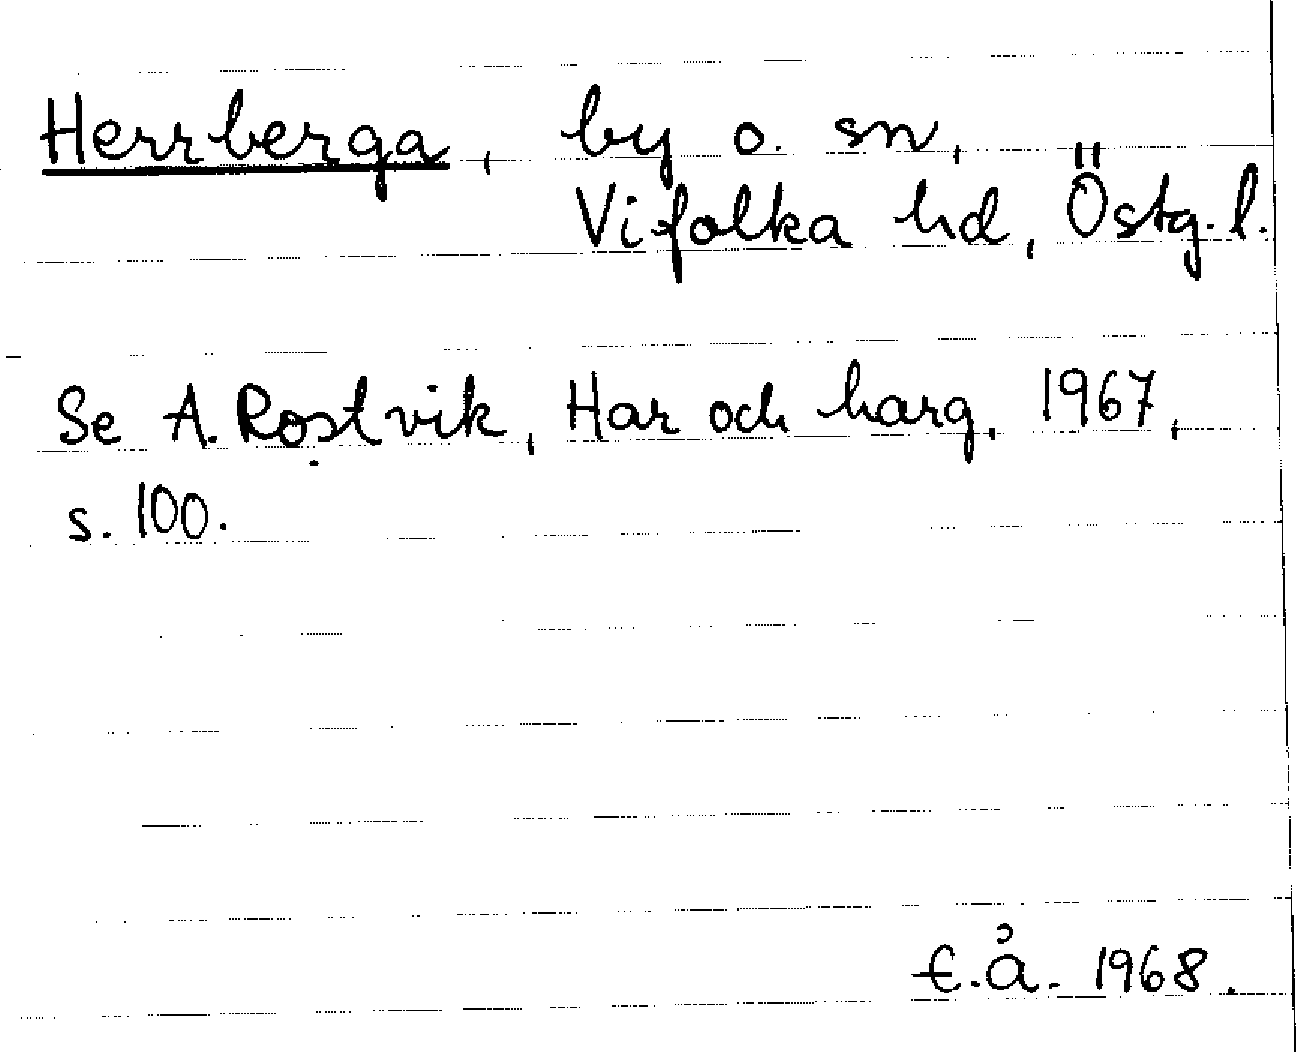 Herrberga, by o. sn,
Vifolka hd, Östg. l.
Se A. Rostvik, Har och harg. 1967,
s. 100.
E.å. 1968.